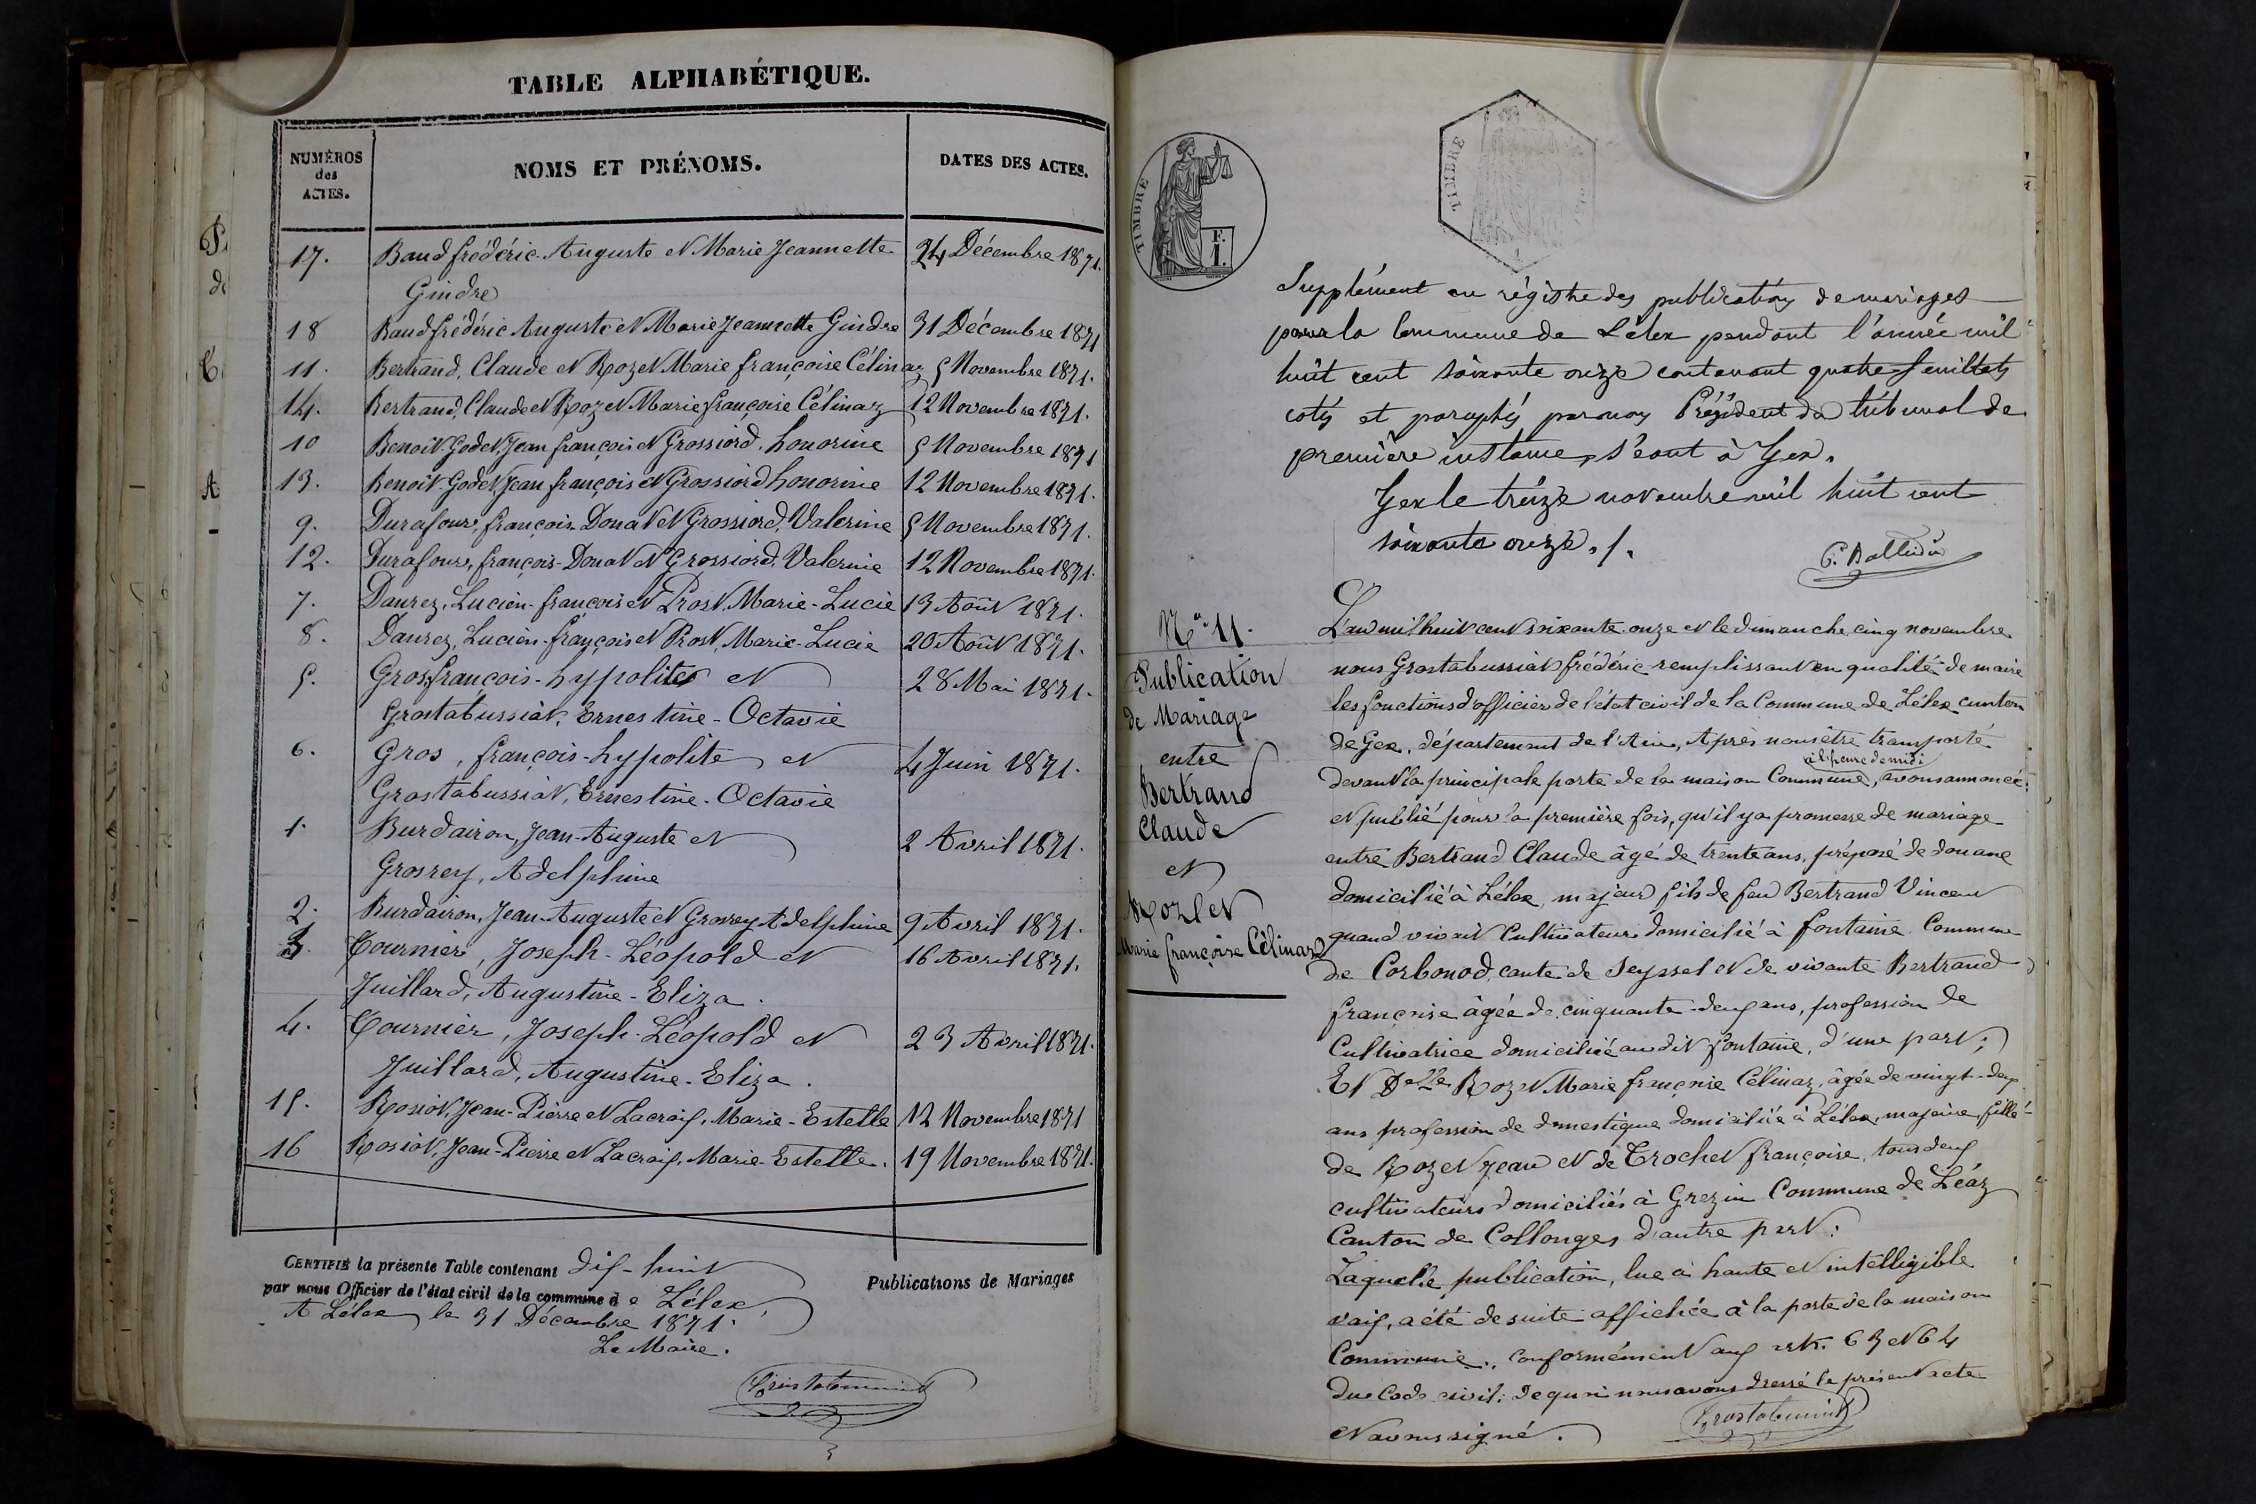 TABLE ALPHABÉTIQUE.
NUMÉROS
des
ACTES.
NOMS ET PRÉNOMS.
DATES DES ACTES.
17. Baud frédéric-Auguste et Marie Jeannette 24 Décembre 1871.
Gindre
18 Baud frédéric Auguste et Marie Jeannette Gindre 31 Décembre 1871
11. Bertrand, Claude et Rozet Marie françoise Célinaz 5 Novembre 1871.
14. Bertrand, Claude et Rozet Marie françoise Célinaz 12 Novembre 1871.
10 Benoit-Godet, Jean françois et Grossiord, honorine 5 Novembre 1871
13. Benoit-Godet, Jean françois et Grossiord honorine 12 Novembre 1871.
9. Durafour, françois-Donat et Grossiord, Valerine 5 Novembre 1871.
12. Durafour, françois-Donat et Grossiord, Valerine 12 Novembre 1871.
7. Daurez, Lucien-françois et Prost, Marie-Lucie 13 Août 1871.
8. Daurez, Lucien-françois et Prost, Marie-Lucie 20 Août 1871.
5. Gros, françois-hypolite et 28 Mai 1871.
Grostabussiat, Ernestine-Octavie
6. Gros, françois-hypolite et 4 Juin 1871.
Grostabussiat, Ernestine-Octavie
1. Burdairon, Jean-Auguste et 2 Avril 1871.
Grosrey, Adelphine
2. Burdairon, Jean-Auguste et Grosrey Adelphine 9 Avril 1871.
3. Tournier, Joseph-Léopold et 16 Avril 1871.
Juillard, Augustine-Eliza.
4. Tournier, Joseph-Léopold et 23 Avril 1871.
Juillard, Augustine-Eliza.
15. Rosiot, Jean-Pierre et Lacroix, Marie-Estelle 12 Novembre 1871
16 Rosiot, Jean-Pierre et Lacroix, Marie-Estelle. 19 Novembre 1871.
CERTIFIÉ la présente Table contenant dix-huit
par nous Officier de l'état civil de la commune d e Lélex,
A Lélex le 31 Décembre 1871.
Le Maire.
Grostabussiat
Publications de Mariages
TIMBRE
F.
1.
TIMBRE
Supplément au régistre des publications de mariages
pour la Commune de Lélex pendant l'année mil
huit cent soixante onze contenant quatre feuillets
cotés et paraphés par nous Président du tribunal de
première instance, séant à Gex.
Gex le treize novembre mil huit cent
soixante onze./.
N° 11.
Publication
de Mariage
entre
Bertrand
Claude
et
Rozet
Marie françoise Célinaz
L'an mil huit cent soixante onze et le dimanche cinq novembre
nous Grostabussiat frédéric remplissant en qualité de maire
les fonctions d'officier de l'état civil de la Commune de Lélex canton
de Gex, département de l'Ain, Après nous être transporté
à l'heure de midi
devant la principale porte de la maison Commune, avons annoncé
et publié pour la première fois, qu'il y a promesse de mariage
entre Bertrand Claude âgé de trente ans, préposé de douane
domicilié à Lélex, majeur fils de feu Bertrand Vincent
quand vivait Cultivateur domicilié à fontaine Commune
de Corbonod, canton de Seyssel et de vivante Bertrand
françoise âgée de cinquante-deux ans, profession de
Cultivatrice domiciliée au dit fontaine, d'une part;
Et Delle Rozet Marie françoise Célinaz, âgée de vingt-deux
ans profession de domestique domiciliée à Lélex, majeure, fille
de Rozet Jean et de Trochet françoise, tous deux
cultivateurs domiciliés à Grezin Commune de Léaz
Canton de Collonges d'autre part:
Laquelle publication, lue à haute et intelligible
voix, a été de suite affichée à la porte de la maison
Commune, conformément aux arts. 63 et 64
du Code civil; De quoi nous avons dressé le présent acte
et avons signé.
Grostabussiat